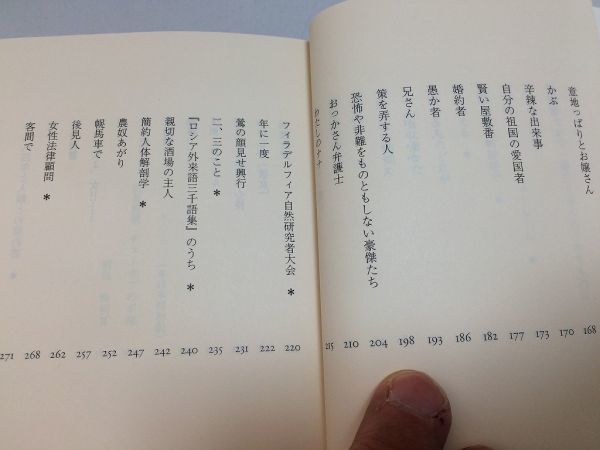 意地っぱりとお嬢さん 168
かぶ 170
辛辣な出来事 173
自分の祖国の愛国者 177
賢い屋敷番 182
婚約者 186
愚か者 193
兄さん 198
策を弄する人 204
恐怖や非難をものともしない豪傑たち 210
おっかさん弁護士 215
わたしの
フィラデルフィア自然研究者大会 * 220
年に一度 222
鶯の顔見せ興行 231
二、三のこと * 235
『ロシア外来語三千語集』のうち * 240
親切な酒場の主人 242
簡約人体解剖学 * 247
農奴あがり 252
幌馬車で 257
後見人 262
女性法律顧問 * 268
客間で 271